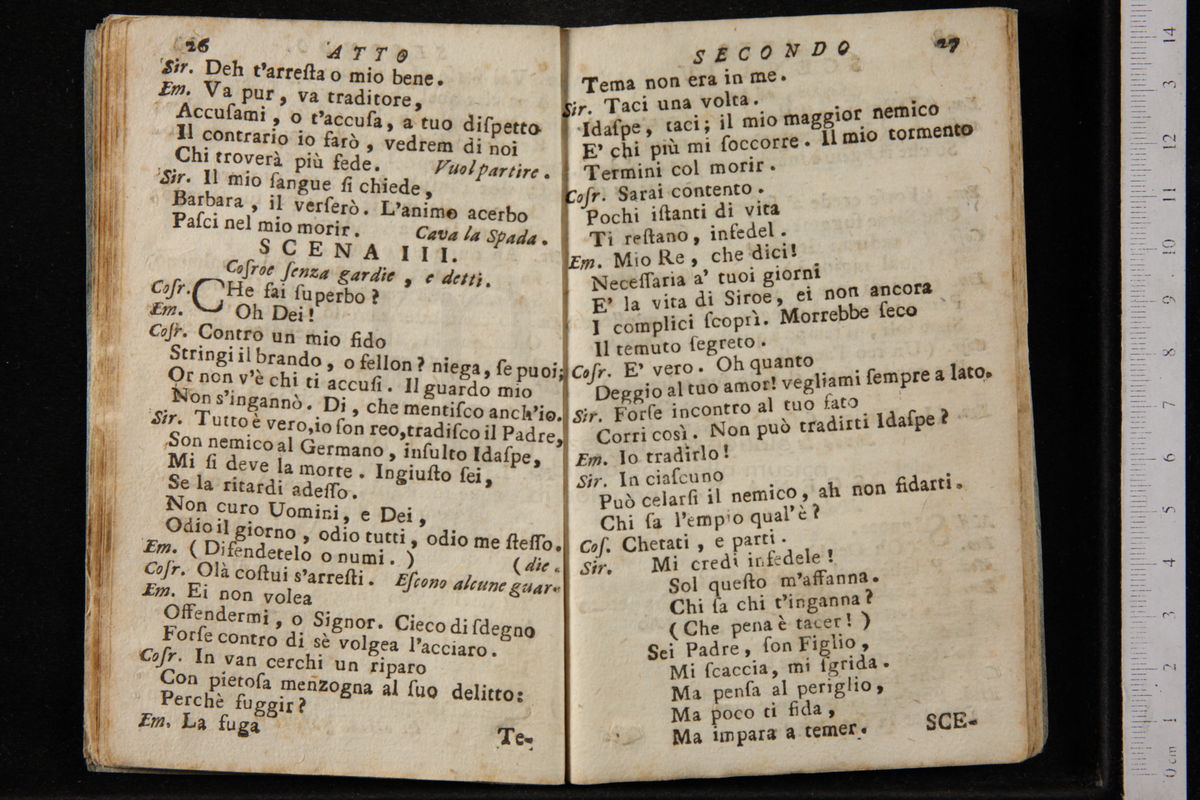 26
ATTO
Sir. Deh t'arreſta o mio bene.
Em. Va pur, va traditore,
Accuſami, o t'accuſa, a tuo diſpetto
Il contrario io farò, vedrem di noi
Chi troverà più fede. Vuol partire.
Sir. Il mio ſangue ſi chiede,
Barbara, il verſerò. L'animo acerbo
Paſci nel mio morir. Cava la Spada.
SCENA III.
Coſroe ſenza gardie, e detti.
Coſr. CHe fai ſuperbo?
Em. Oh Dei!
Coſr. Contro un mio fido
Stringi il brando, o fellon? niega, ſe puoi;
Or non v'è chi ti accuſi. Il guardo mio
Non s'ingannò. Di, che mentiſco anch'io.
Sir. Tutto è vero, io ſon reo, tradiſco il Padre,
Son nemico al Germano, inſulto Idaſpe,
Mi ſi deve la morte. Ingiuſto ſei,
Se la ritardi adeſſo.
Non curo Uomini, e Dei,
Odio il giorno, odio tutti, odio me ſteſſo.
Em. (Difendetelo o numi.) (die.
Coſr. Olà coſtui s'arreſti. Eſcono alcune guar-
Em. Ei non volea
Offendermi, o Signor. Cieco di ſdegno
Forſe contro di sè volgea l'acciaro.
Coſr. In van cerchi un riparo
Con pietoſa menzogna al ſuo delitto:
Perchè fuggir?
Em. La fuga
Te-
SECONDO
27
Tema non era in me.
Sir. Taci una volta.
Idaſpe, taci; il mio maggior nemico
E' chi più mi ſoccorre. Il mio tormento
Termini col morir.
Coſr. Sarai contento.
Pochi iſtanti di vita
Ti reſtano, infedel.
Em. Mio Re, che dici!
Neceſſaria a' tuoi giorni
E' la vita di Siroe, ei non ancora
I complici ſcoprì. Morrebbe ſeco
Il temuto ſegreto.
Coſr. E' vero. Oh quanto
Deggio al tuo amor! vegliami ſempre a lato.
Sir. Forſe incontro al tuo fato
Corri così. Non può tradirti Idaſpe?
Em. Io tradirlo!
Sir. In ciaſcuno
Può celarſi il nemico, ah non fidarti.
Chi ſa l'empio qual'è?
Coſ. Chetati, e parti.
Sir. Mi credi infedele!
Sol queſto m'affanna.
Chi ſa chi t'inganna?
(Che pena è tacer!)
Sei Padre, ſon Figlio,
Mi ſcaccia, mi ſgrida.
Ma penſa al periglio,
Ma poco ti fida,
Ma impara a temer.
SCE-
0 cm 1 2 3 4 5 6 7 8 9 10 11 12 13 14